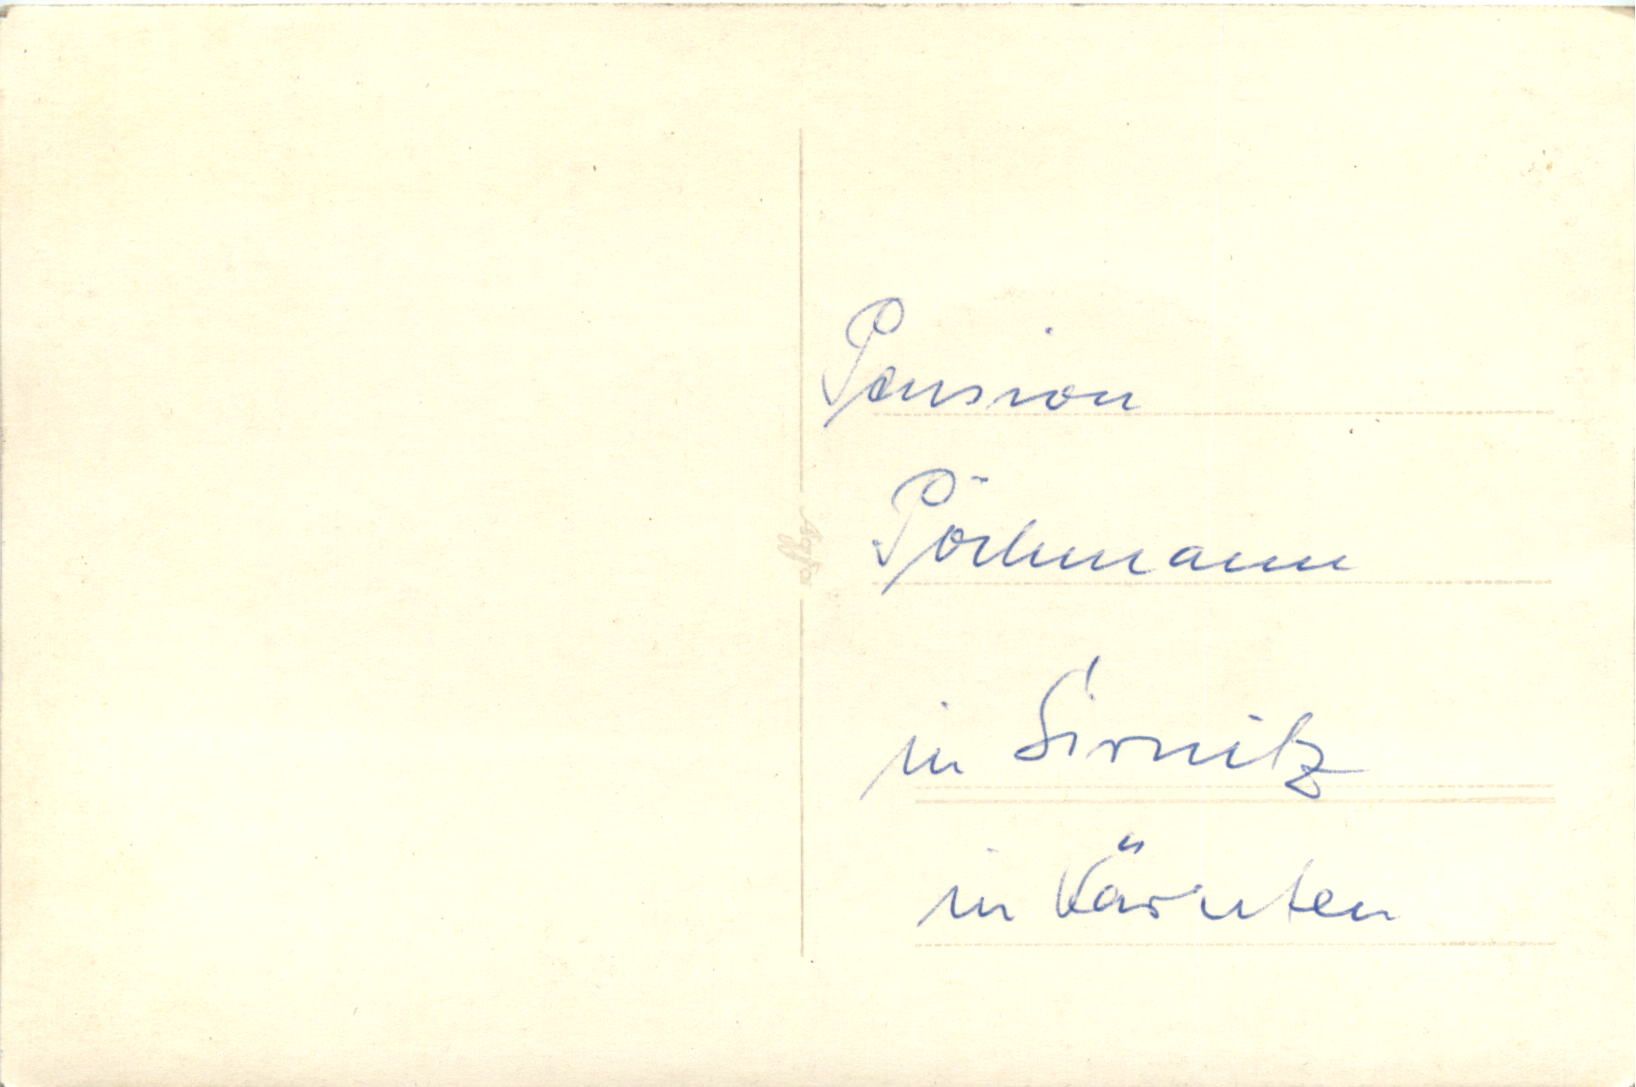 Pension
Pöchmann
in Sirnitz
in Kärnten
Agfa